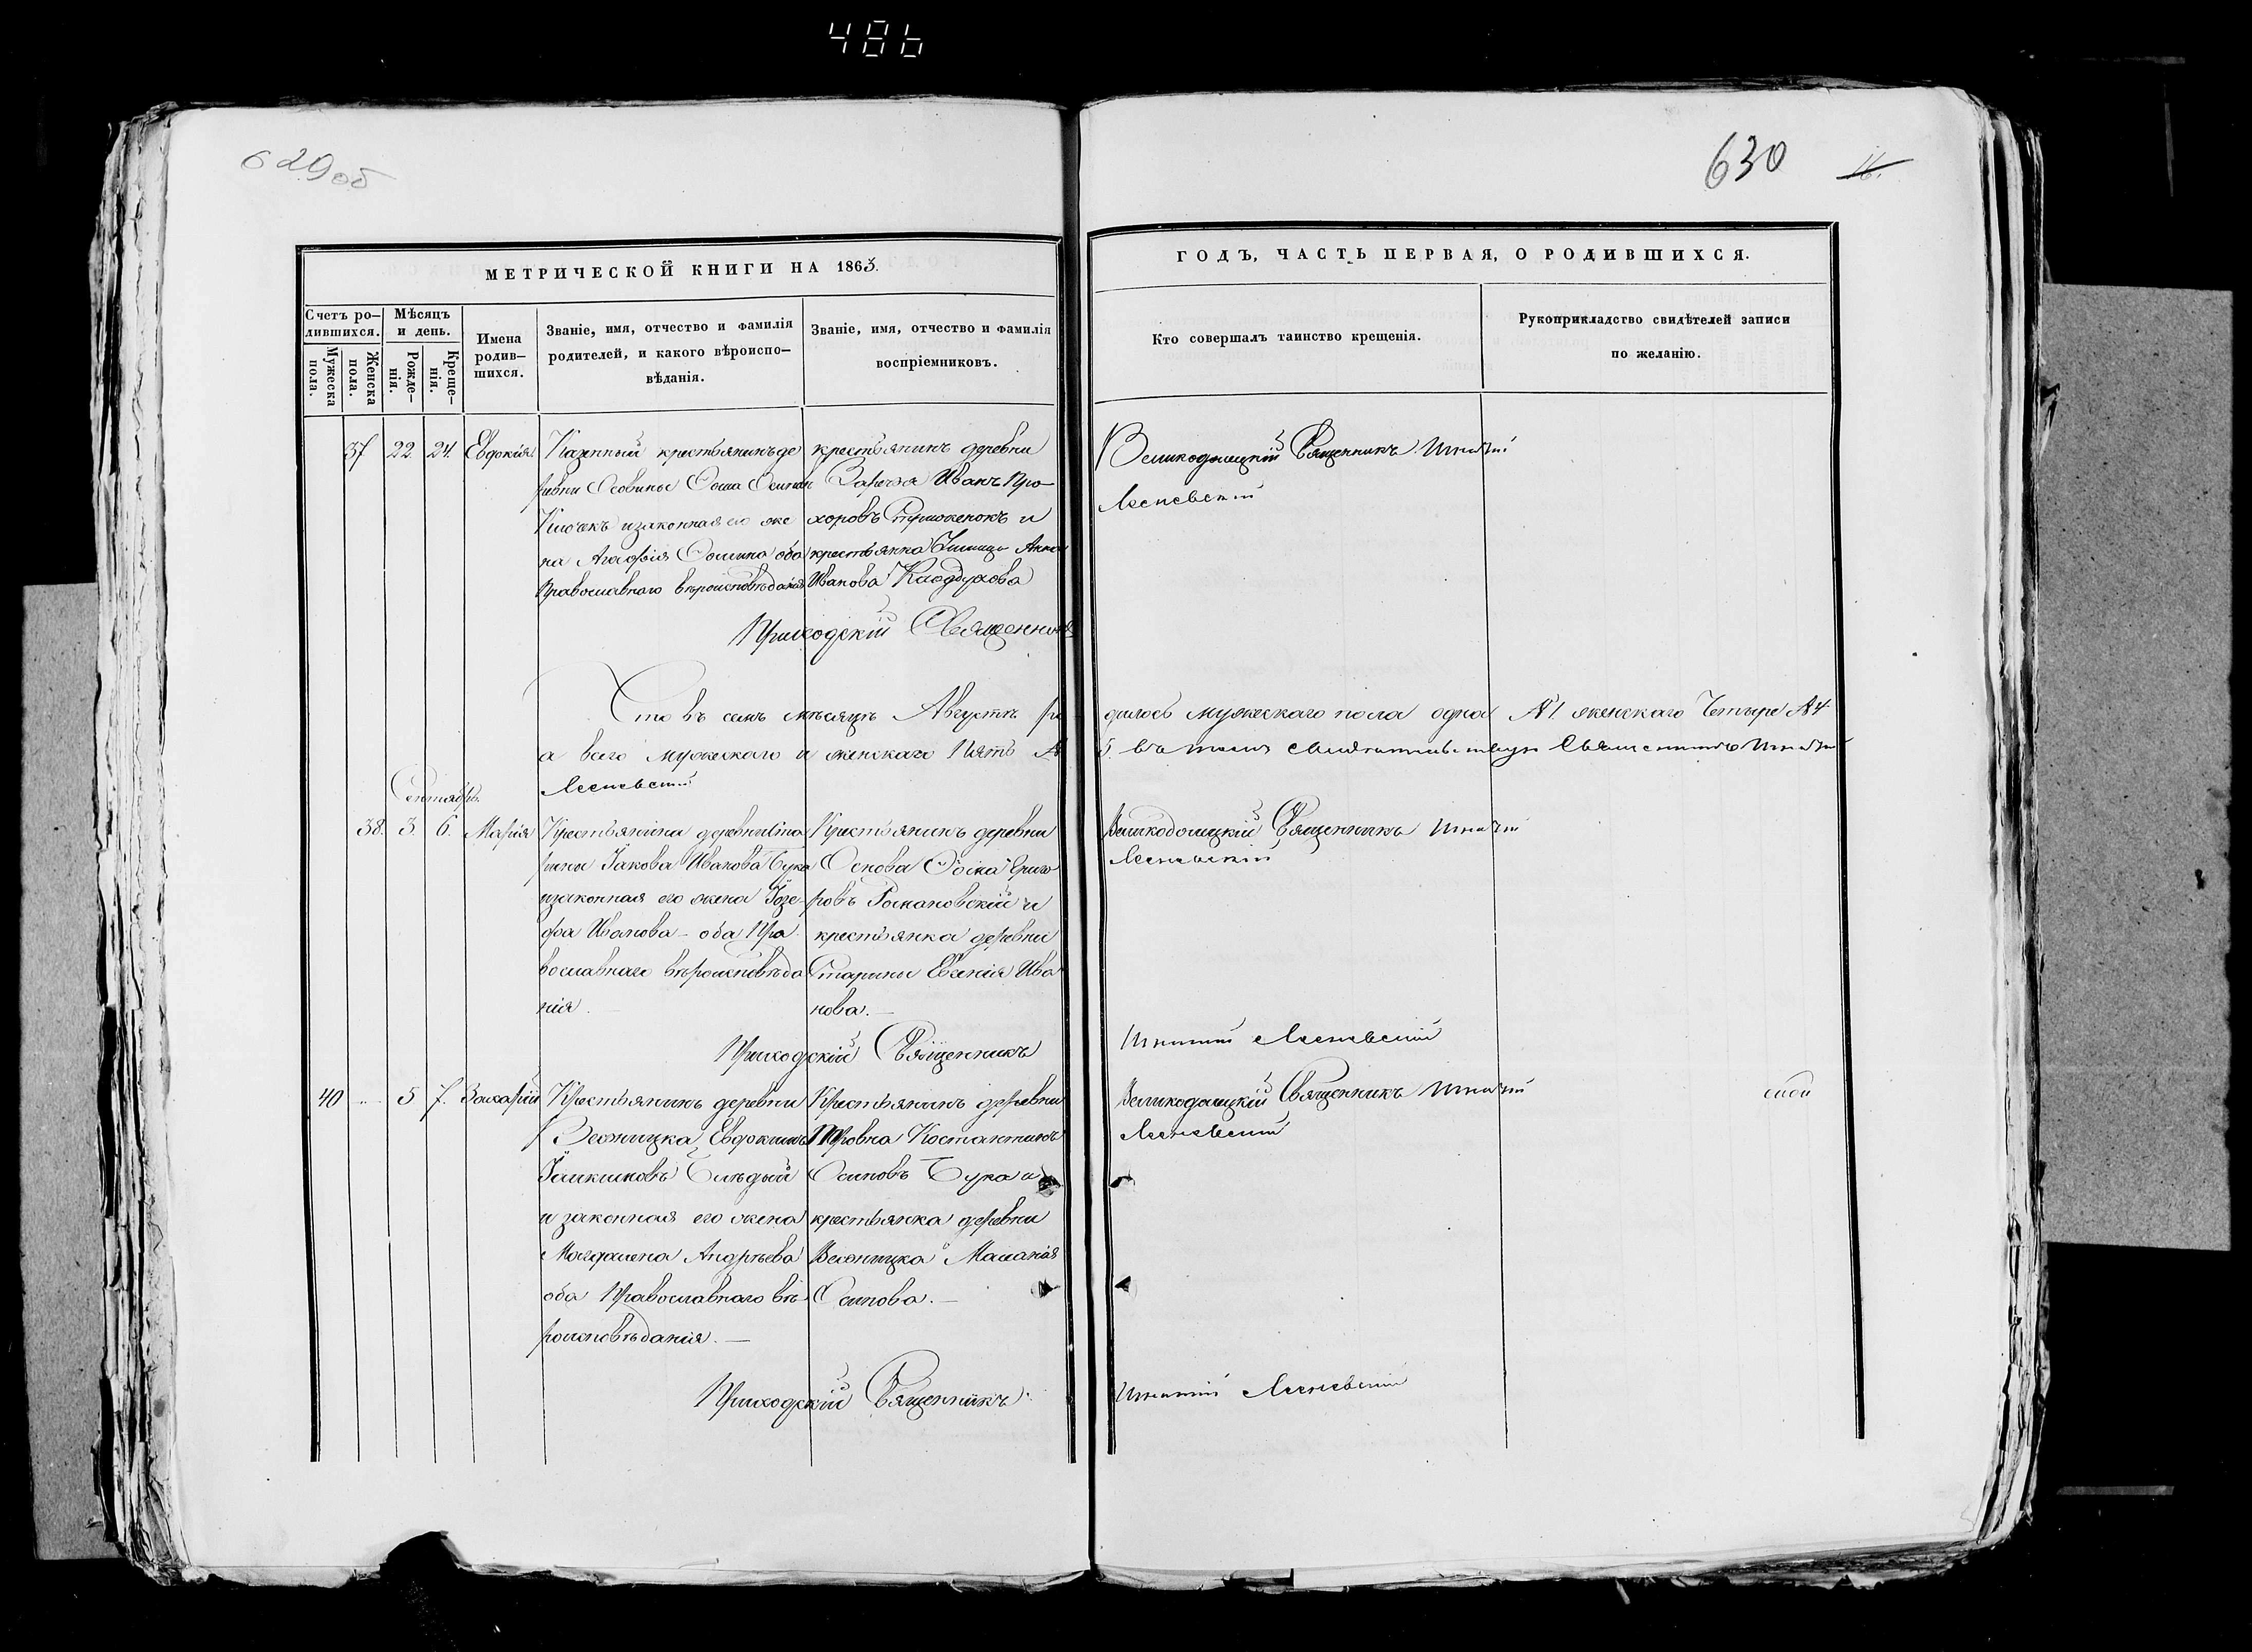 486
629 об
630
16.
МЕТРИЧЕСКОЙ КНИГИ НА 1863.
ГОДЪ, ЧАСТЬ ПЕРВАЯ, О РОДИВШИХСЯ.
Счетъ ро-
дившихся.
Мужеска
пола.
Женска
пола.
Мѣсяцъ
и день.
Рожде-
нія.
Креще-
нія.
Имена
родив-
шихся.
Званіе, имя, отчество и фамилія
родителей, и какого вѣроиспо-
вѣданія.
Званіе, имя, отчество и фамилія
воспріемниковъ.
Кто совершалъ таинство крещенія.
Рукоприкладство свидѣтелей записи
по желанію.
37 22 24. Евдокія
Казенный крестьянинъ де
ревни Осовины Ѳома Осиповъ
изаконная его же
на Агафія Ѳомина оба
Православнаго вѣроисповѣданія
крестьянинъ деревни
Заречья Иванъ Про-
хоровъ и
крестьянка Анна
Иванова
Великодолецкій Священникъ Игнатій
Лесневскій
Приходскій Священникъ
Что въ семъ мѣсяцѣ Августѣ ро
дилось мужескаго пола одна №1. женскаго Четыре №4
а всего мужескаго и женскаго Пять №
5. въ томъ свидѣтельствую Священникъ Игнатій
Лесневскій
Сентябрь.
38. 3. 6. Марія
Крестьянина деревни Ста
рины Іакова Иванова Бука
изаконная его жена Іозе-
фа Иванова - оба Пра
вославнаго вѣроисповѣда
нія.
Крестьянинъ деревни
Основа Ѳома Григо
ровъ Романовскій и
крестьянка деревни
Старины Евгенія Ива
нова.
Великодолецкій Священникъ Игнатій
Лесневскій
Приходскій Священникъ
Игнатій Лесневскій
40 5 7. Захарій
Крестьянинъ деревни
Евдокимъ
и законная его жена
Магдалена Андрѣева
оба Православнаго вѣ-
роисповѣданія.
Крестьянинъ деревни
Костантинъ
Осиповъ Бука и
крестьянка деревни
Маланія
Осипова.
Великодолецкій Священникъ Игнатій
Лесневскій
Приходскій Священникъ
Игнатій Лесневскій